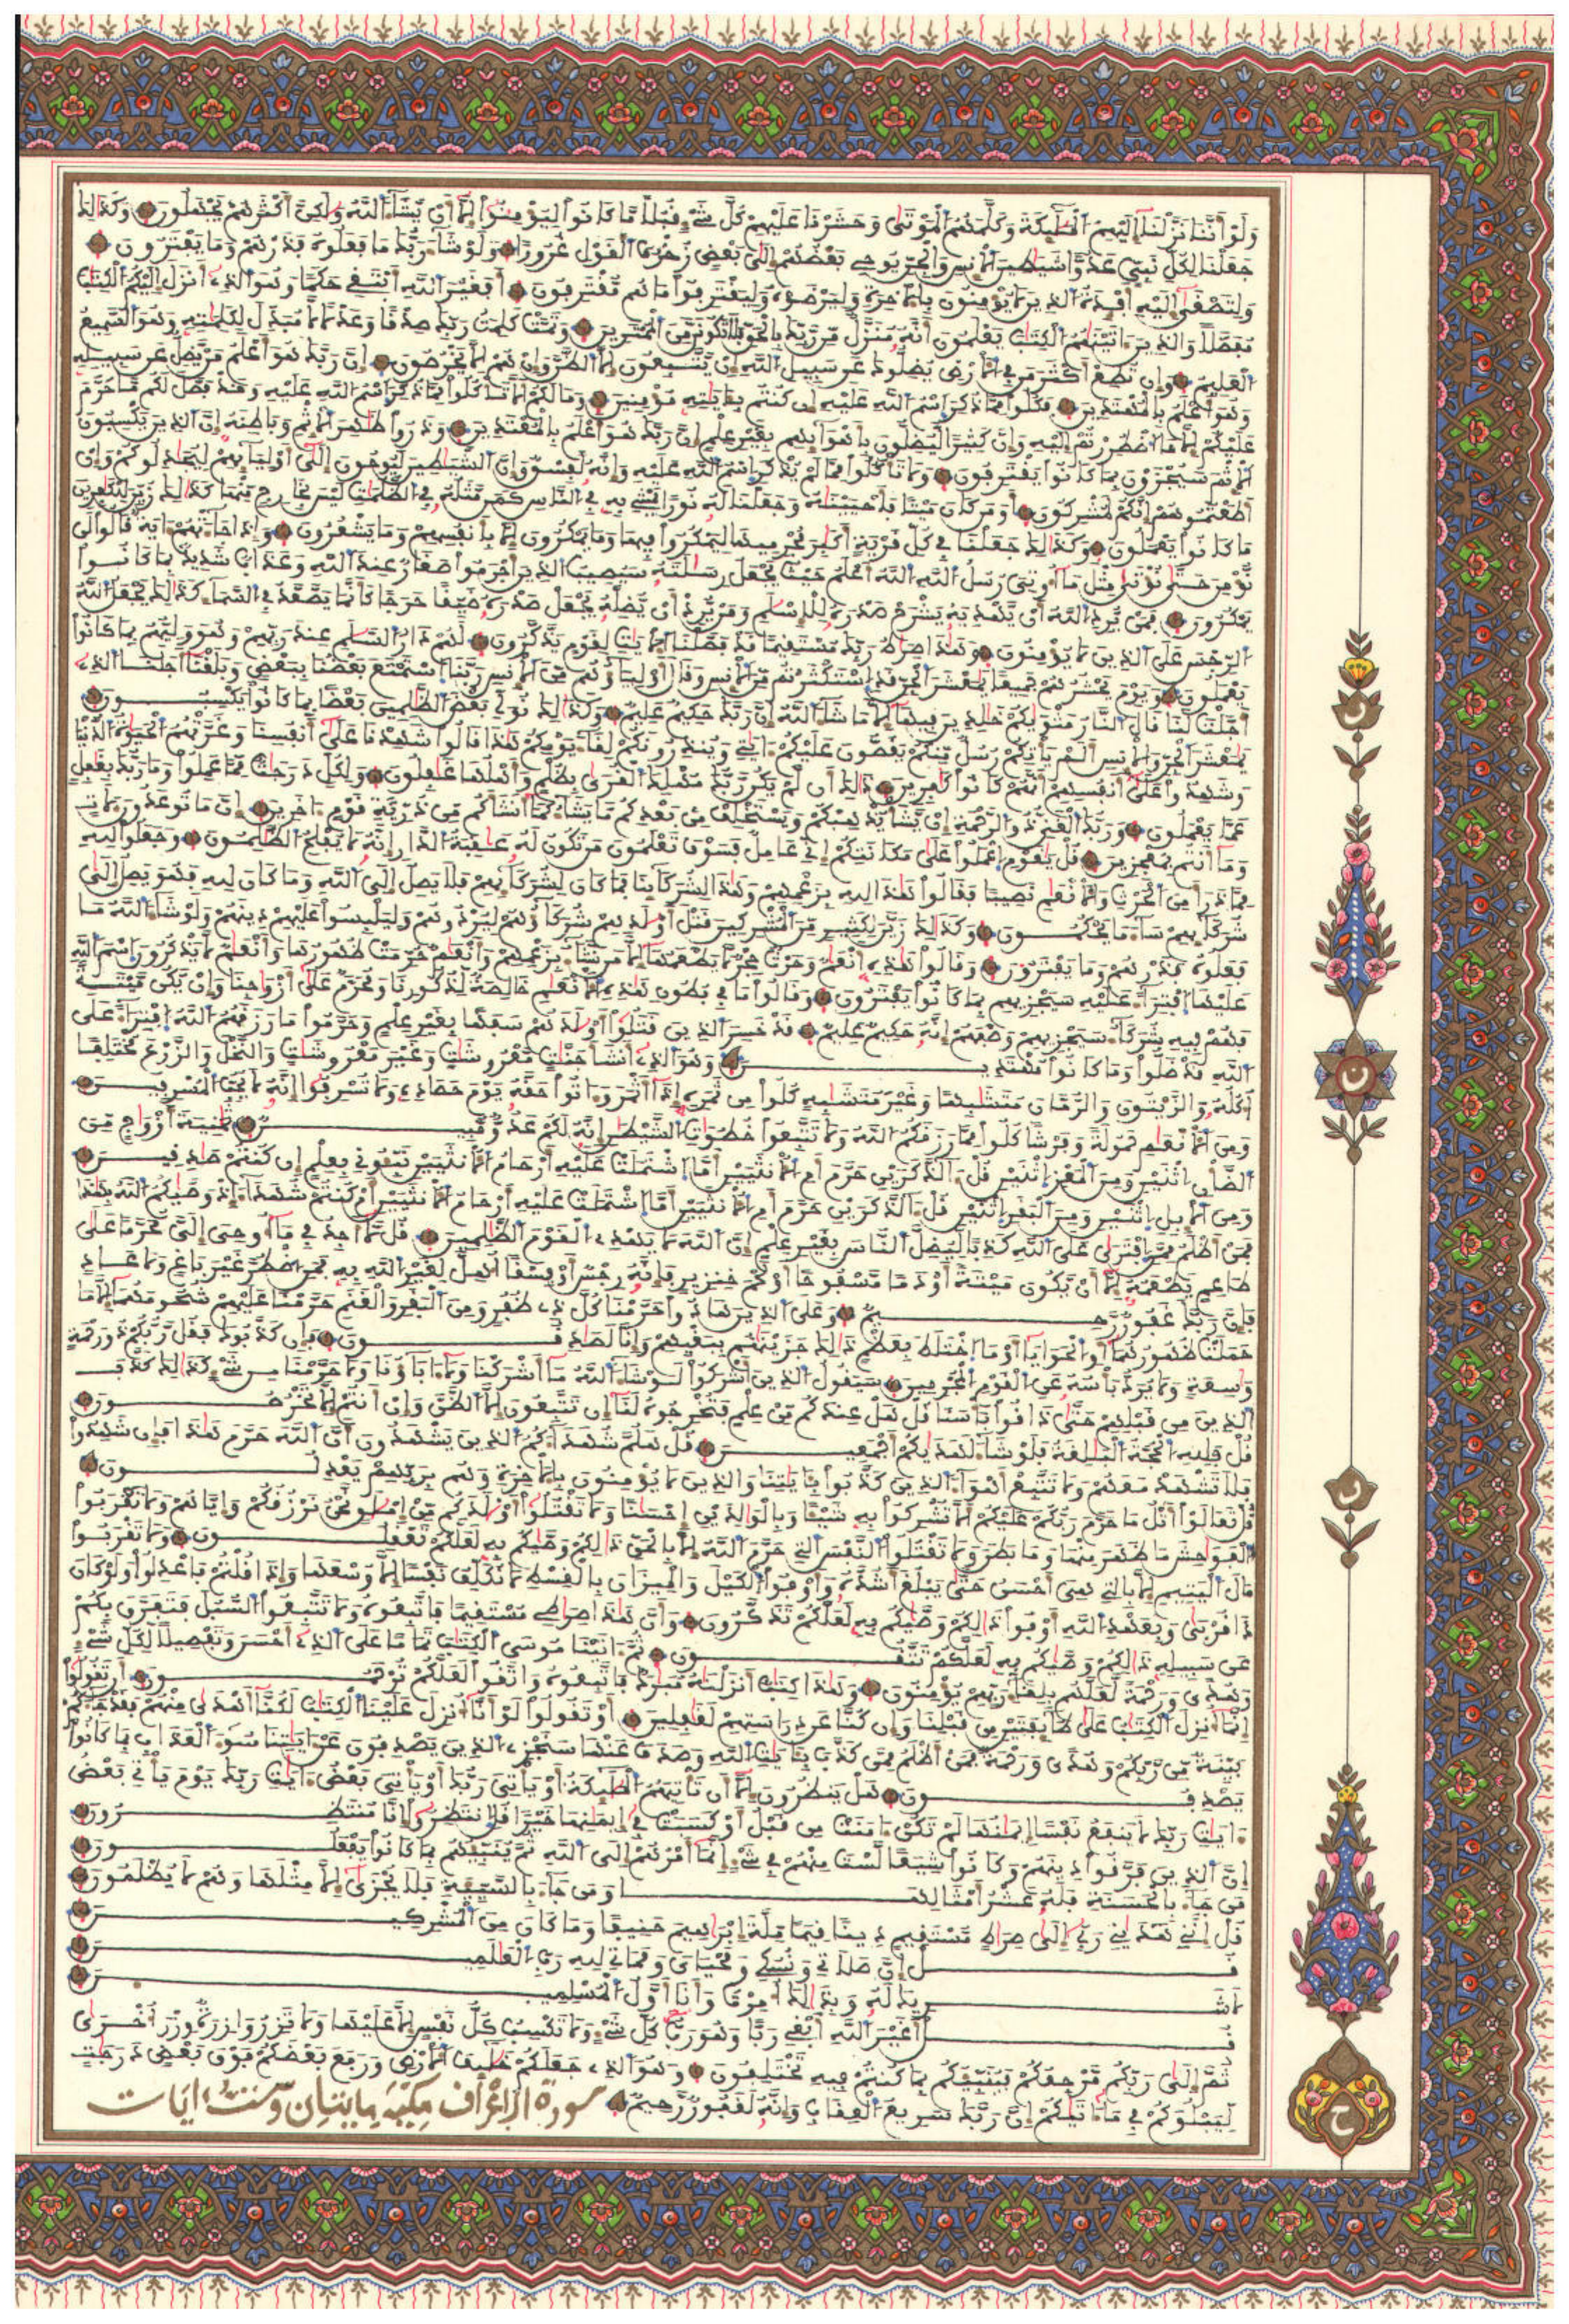 ولو أننا نزلنا إليهم الملئكة وكلمهم الموتى وحشرنا عليهم كل شيء قبلا ما كانوا ليؤمنوا إلا أن يشاء الله ولكن أكثرهم يجهلون وكذلك
جعلنا لكل نبيء عدوا شيطين الانس والجن يوحي بعضهم إلى بعض زخرف القول غرورا ولو شاء ربك ما فعلوه فذرهم وما يفترون
ولتصغى إليه أفئدة الذين لا يؤمنون بالاخرة وليرضوه وليقترفوا ما هم مقترفون أفغير الله أبتغي حكما وهو الذي أنزل إليكم الكتب
مفصلا والذين ءاتينهم الكتب يعلمون أنه منزل من ربك بالحق فلا تكونن من الممترين وتمت كلمت ربك صدقا وعدلا لا مبدل لكلمته وهو السميع
العليم وإن تطع أكثر من في الارض يضلوك عن سبيل الله إن يتبعون إلا الظن وإن هم إلا يخرصون إن ربك هو أعلم من يضل عن سبيله
وهو أعلم بالمهتدين فكلوا مما ذكر اسم الله عليه إن كنتم بئايته مؤمنين وما لكم ألا تاكلوا مما ذكر اسم الله عليه وقد فصل لكم ما حرم
عليكم إلا ما اضطررتم إليه وإن كثيرا ليضلون بأهوائهم بغير علم إن ربك هو أعلم بالمعتدين وذروا ظهر الاثم وباطنه إن الذين يكسبون
الاثم سيجزون بما كانوا يقترفون ولا تاكلوا مما لم يذكر اسم الله عليه وإنه لفسق وإن الشيطين ليوحون إلى أوليائهم ليجدلوكم وإن
أطعتموهم إنكم لمشركون أو من كان ميتا فأحيينه وجعلنا له نورا يمشي به في الناس كمن مثله في الظلمت ليس بخارج منها كذلك زين للكفرين
ما كانوا يعملون وكذلك جعلنا في كل قرية أكبر مجرميها ليمكروا فيها وما يمكرون إلا بأنفسهم وما يشعرون وإذا جاءتهم ءاية قالوا لن
نؤمن حتى نؤتى مثل ما أوتي رسل الله الله أعلم حيث يجعل رسلته سيصيب الذين أجرموا صغار عند الله وعذاب شديد بما كانوا
يمكرون فمن يرد الله أن يهديه يشرح صدره للاسلم ومن يرد أن يضله يجعل صدره ضيقا حرجا كأنما يصعد في السماء كذلك يجعل الله
الرجس على الذين لا يؤمنون وهذا صراط ربك مستقيما قد فصلنا الايت لقوم يذكرون لهم دار السلم عند ربهم وهو وليهم بما كانوا
يعملون ويوم نحشرهم جميعا يمعشر الجن قد استكثرتم من الانس وقال أولياؤهم من الانس ربنا استمتع بعضنا ببعض وبلغنا أجلنا الذي
أجلت لنا قال النار مثويكم خلدين فيها إلا ما شاء الله إن ربك حكيم عليم وكذلك نولي بعض الظلمين بعضا بما كانوا يكسبون
يمعشر الجن والانس ألم ياتكم رسل منكم يقصون عليكم ءايتي وينذرونكم لقاء يومكم هذا قالوا شهدنا على أنفسنا وغرتهم الحيوة الدنيا
وشهدوا على أنفسهم أنهم كانوا كفرين ذلك أن لم يكن ربك مهلك القرى بظلم وأهلها غفلون ولكل درجت مما عملوا وما ربك بغفل
عما يعملون وربك الغني ذو الرحمة إن يشأ يذهبكم ويستخلف من بعدكم ما يشاء كما أنشأكم من ذرية قوم ءاخرين إن ما توعدون لأت
وما أنتم بمعجزين قل يقوم اعملوا على مكانتكم إني عامل فسوف تعلمون من تكون له عقبة الدار إنه لا يفلح الظلمون وجعلوا لله
مما ذرأ من الحرث والانعم نصيبا فقالوا هذا لله بزعمهم وهذا لشركائنا فما كان لشركائهم فلا يصل إلى الله وما كان لله فهو يصل إلى
شركائهم ساء ما يحكمون وكذلك زين لكثير من المشركين قتل أولدهم شركاؤهم ليردوهم وليلبسوا عليهم دينهم ولو شاء الله ما
فعلوه فذرهم وما يفترون وقالوا هذه أنعم وحرث حجر لا يطعمها إلا من نشاء بزعمهم وأنعم حرمت ظهورها وأنعم لا يذكرون اسم الله
عليها افتراء عليه سيجزيهم بما كانوا يفترون وقالوا ما في بطون هذه الانعم خالصة لذكورنا ومحرم على أزوجنا وإن يكن ميتة
فهم فيه شركاء سيجزيهم وصفهم إنه حكيم عليم قد خسر الذين قتلوا أولدهم سفها بغير علم وحرموا ما رزقهم الله افتراء على
الله قد ضلوا وما كانوا مهتدين وهو الذي أنشأ جنت معروشت وغير معروشت والنخل والزرع مختلفا
أكله والزيتون والرمان متشبها وغير متشبه كلوا من ثمره إذا أثمر وءاتوا حقه يوم حصاده ولا تسرفوا إنه لا يحب المسرفين
ومن الانعم حمولة وفرشا كلوا مما رزقكم الله ولا تتبعوا خطوت الشيطن إنه لكم عدو مبين ثمنية أزوج من
الضأن اثنين ومن المعز اثنين قل ءالذكرين حرم أم الانثيين أما اشتملت عليه أرحام الانثيين نبئوني بعلم إن كنتم صدقين
ومن الابل اثنين ومن البقر اثنين قل ءالذكرين حرم أم الانثيين أما اشتملت عليه أرحام الانثيين أم كنتم شهداء إذ وصيكم الله بهذا
فمن أظلم ممن افترى على الله كذبا ليضل الناس بغير علم إن الله لا يهدي القوم الظلمين قل لا أجد في ما أوحي إلي محرما على
طاعم يطعمه إلا أن يكون ميتة أو دما مسفوحا أو لحم خنزير فإنه رجس أو فسقا أهل لغير الله به فمن اضطر غير باغ ولا عاد
فإن ربك غفور رحيم وعلى الذين هادوا حرمنا كل ذي ظفر ومن البقر والغنم حرمنا عليهم شحومهما إلا ما
حملت ظهورهما أو الحوايا أو ما اختلط بعظم ذلك جزينهم ببغيهم وإنا لصدقون فإن كذبوك فقل ربكم ذو رحمة
وسعة ولا يرد بأسه عن القوم المجرمين سيقول الذين أشركوا لو شاء الله ما أشركنا ولا ءاباؤنا ولا حرمنا من شيء كذلك كذب
الذين من قبلهم حتى ذاقوا بأسنا قل هل عندكم من علم فتخرجوه لنا إن تتبعون إلا الظن وإن أنتم إلا تخرصون
قل فلله الحجة البلغة فلو شاء لهديكم أجمعين قل هلم شهداءكم الذين يشهدون أن الله حرم هذا فإن شهدوا
فلا تشهد معهم ولا تتبع أهواء الذين كذبوا بئايتنا والذين لا يؤمنون بالاخرة وهم بربهم يعدلون
قل تعالوا أتل ما حرم ربكم عليكم ألا تشركوا به شيئا وبالولدين إحسنا ولا تقتلوا أولدكم من إملق نحن نرزقكم وإياهم ولا تقربوا
الفوحش ما ظهر منها وما بطن ولا تقتلوا النفس التي حرم الله إلا بالحق ذلكم وصيكم به لعلكم تعقلون ولا تقربوا
مال اليتيم إلا بالتي هي أحسن حتى يبلغ أشده وأوفوا الكيل والميزان بالقسط لا نكلف نفسا إلا وسعها وإذا قلتم فاعدلوا ولو كان
ذا قربى وبعهد الله أوفوا ذلكم وصيكم به لعلكم تذكرون وأن هذا صراطي مستقيما فاتبعوه ولا تتبعوا السبل فتفرق بكم
عن سبيله ذلكم وصيكم به لعلكم تتقون ثم ءاتينا موسى الكتب تماما على الذي أحسن وتفصيلا لكل شيء
وهدى ورحمة لعلهم بلقاء ربهم يؤمنون وهذا كتب أنزلنه مبرك فاتبعوه واتقوا لعلكم ترحمون أن تقولوا
إنما أنزل الكتب على طائفتين من قبلنا وإن كنا عن دراستهم لغفلين أو تقولوا لو أنا أنزل علينا الكتب لكنا أهدى منهم فقد جاءكم
بينة من ربكم وهدى ورحمة فمن أظلم ممن كذب بئايت الله وصدف عنها سنجزي الذين يصدفون عن ءايتنا سوء العذاب بما كانوا
يصدفون هل ينظرون إلا أن تاتيهم الملئكة أو ياتي ربك أو ياتي بعض ءايت ربك يوم ياتي بعض
ءايت ربك لا ينفع نفسا إيمنها لم تكن ءامنت من قبل أو كسبت في إيمنها خيرا قل انتظروا إنا منتظرون
إن الذين فرقوا دينهم وكانوا شيعا لست منهم في شيء إنما أمرهم إلى الله ثم ينبئهم بما كانوا يفعلون
من جاء بالحسنة فله عشر أمثالها ومن جاء بالسيئة فلا يجزى إلا مثلها وهم لا يظلمون
قل إنني هديني ربي إلى صراط مستقيم دينا قيما ملة إبرهيم حنيفا وما كان من المشركين
قل إن صلاتي ونسكي ومحياي ومماتي لله رب العلمين
لا شريك له وبذلك أمرت وأنا أول المسلمين
قل أغير الله أبغي ربا وهو رب كل شيء ولا تكسب كل نفس إلا عليها ولا تزر وازرة وزر أخرى
ثم إلى ربكم مرجعكم فينبئكم بما كنتم فيه تختلفون وهو الذي جعلكم خلئف الارض ورفع بعضكم فوق بعض درجت
ليبلوكم في ما ءاتيكم إن ربك سريع العقاب وإنه لغفور رحيم سورة الاعراف مكية مايتان وست ايات
ن
ن
ن
ح